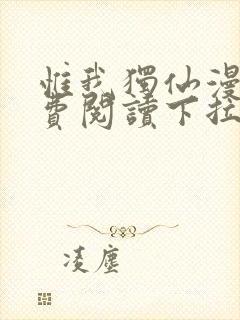 惟我獨仙漫
費閱讀下拉
凌塵